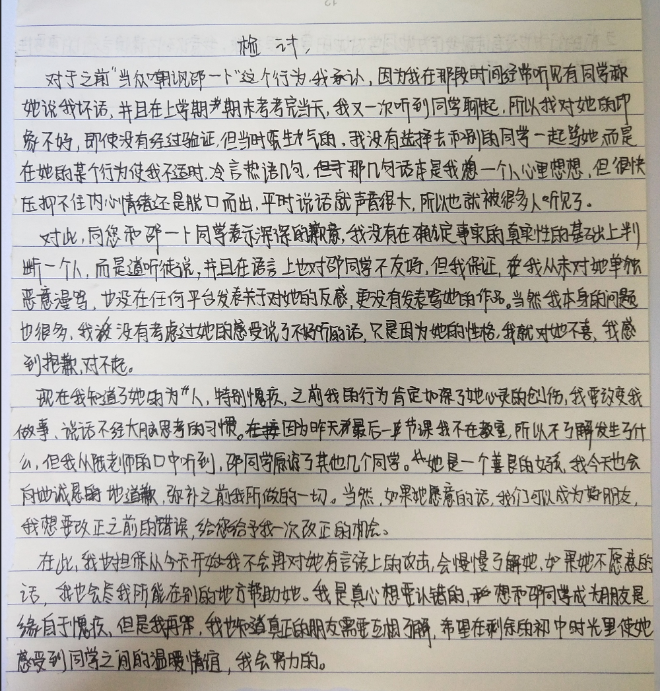 检讨
对于之前"当众嘲讽邵一卜"这个行为,我承认,因为我在那段时间经常听见有同学称
她说我坏话,并且在上学期期末考考完当天,我又一次听到同学聊起,所以我对她的印
象不好,即使没有经过验证,但当时蛮生气的,我没有选择去和别的同学一起骂她,而是
在她的某个行为使我不适时,冷言热语几句,但那几句话本是我想一个人心里想想,但很快
压抑不住内心情绪还是脱口而出,平时说话就声音很大,所以也就被很多人听见了。
对此,向您和邵一卜同学表示深深的歉意,我没有在确定事实的真实性的基础上判
断一个人,而是道听徒说,并且在语言上也对邵同学不友好,但我保证,我从未对她单独
恶意漫骂,也没在任何平台发表关于对她的反感,更没有发表骂她的作品。当然我本身的问题
也很多,我没有考虑过她的感受说了不好听的话,只是因为她的性格,我就对她不喜,我感
到抱歉,对不起。
现在我知道了她的为人,特别愧疚,之前我的行为肯定加深了她心灵的创伤,我要改变我
做事、说话不经大脑思考的习惯。因为昨天最后一节课我不在教室,所以不了解发生了什
么,但我从陈老师的口中听到,邵同学原谅了其他几个同学。她是一个善良的女孩,我今天也会
向她诚恳的地道歉,弥补之前我所做的一切。当然,如果她愿意的话,我们可以成为好朋友,
我想要改正之前的错误,给您给予我一次改正的机会。
在此,我也担保从今天开始我不会再对她有言语上的攻击,会慢慢了解她,如果她不愿意的
话,我也会尽我所能在别的地方帮助她。我是真心想要认错的,想和邵同学成为朋友是
缘自于愧疚,但是我再伴,我也知道真正的朋友需要互相了解,希望在剩余的初中时光里使她
感受到同学之间的温暖情谊,我会努力的。